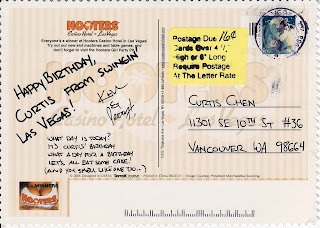 HOOTERS
Casino Hotel • Las Vegas
Everyone's a winner at Hooters Casino Hotel in Las Vegas!
Try out our new slot machines and table games, and
don't forget to visit the Hooters Girl Party Pit.
HAPPY BIRTHDAY,
CURTIS FROM SWINGIN'
LAS VEGAS!
WHAT DAY IS TODAY?
IT'S CURTIS' BIRTHDAY
WHAT A DAY FOR A BIRTHDAY
LET'S ALL EAT SOME CAKE!
(AND YOU SMELL LIKE ONE, TOO...)
HOOTERS
Postage Due 16¢
Cards Over 4 ¼"
High or 6" Long
Require Postage
At The Letter Rate
CURTIS CHEN
11301 SE 10TH ST #36
VANCOUVER WA 98664